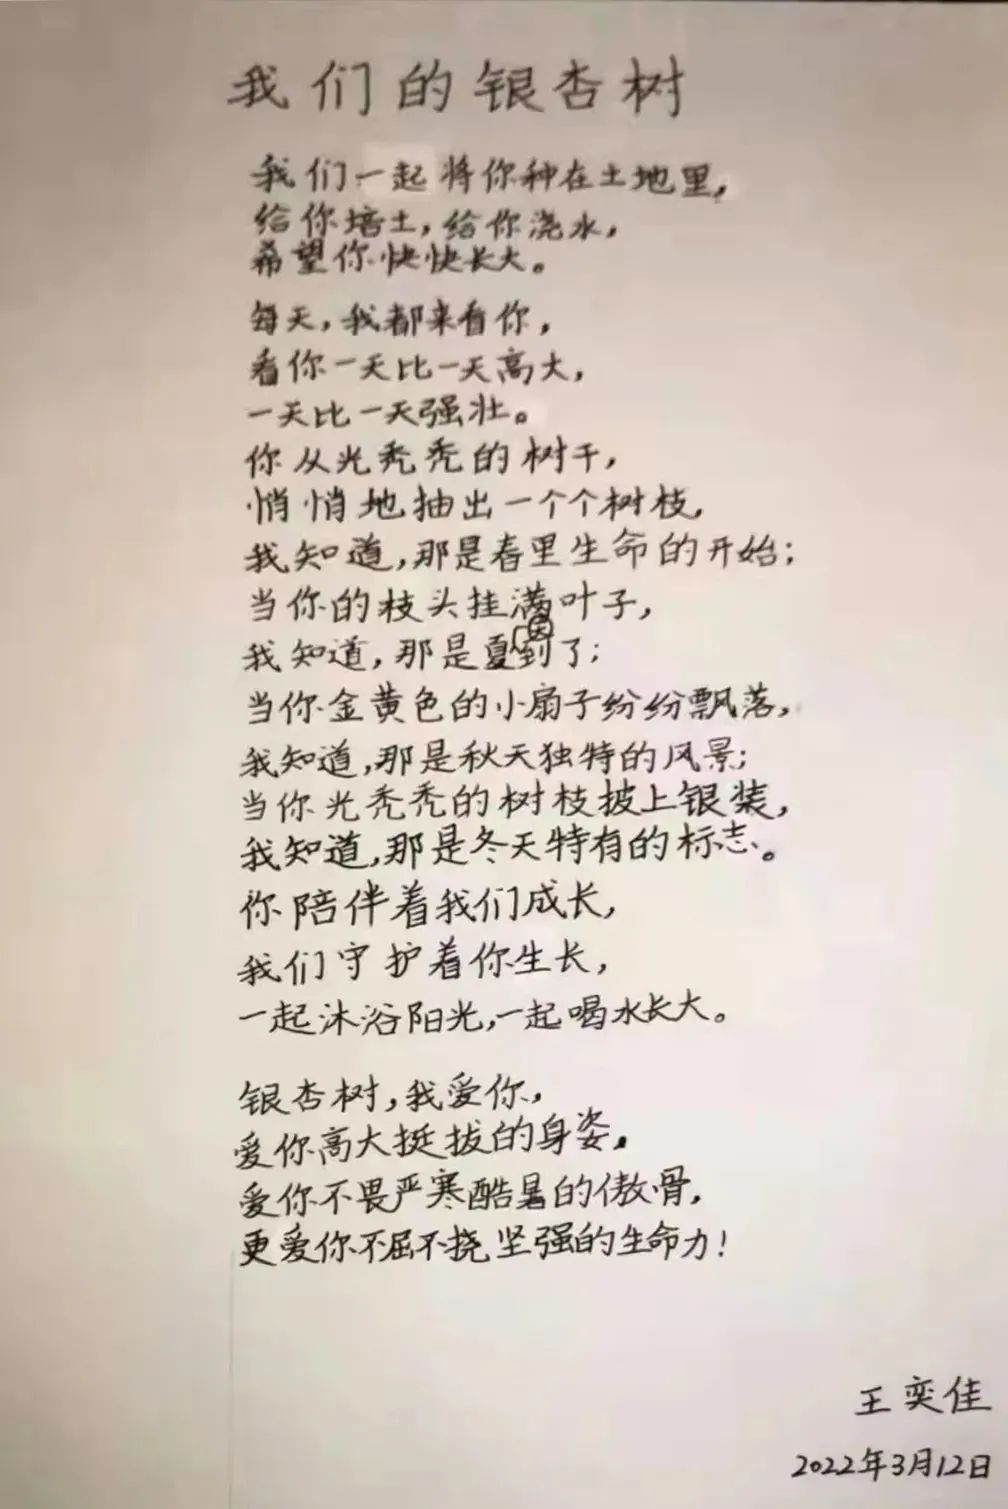 我们的银杏树
我们一起将你种在土地里,
给你培土,给你浇水,
希望你快快长大。
每天,我都来看你,
看你一天比一天高大,
一天比一天强壮。
你从光秃秃的树干,
悄悄地抽出一个个树枝,
我知道,那是春里生命的开始;
当你的枝头挂满叶子,
我知道,那是夏到了;
当你金黄色的小扇子纷纷飘落,
我知道,那是秋天独特的风景;
当你光秃秃的树枝披上银装,
我知道,那是冬天特有的标志。
你陪伴着我们成长,
我们守护着你生长,
一起沐浴阳光,一起喝水长大。
银杏树,我爱你,
爱你高大挺拔的身姿,
爱你不畏严寒酷暑的傲骨,
更爱你不屈不挠坚强的生命力!
王奕佳
2022年3月12日